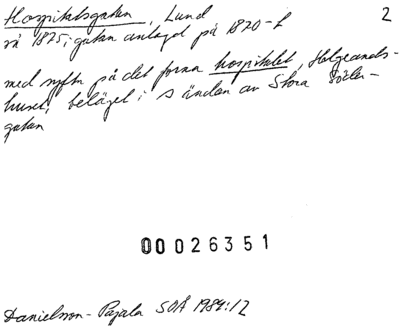 Hospitalsgatan, Lund 2
så 1875; gatan anlagd på 1870-t
med syftn på det forna hospitalet, Helgeands-
huset, beläget i s ändan av Stora Söder-
gatan
00026351
Danielsson-Pajala SOÅ 1984:12